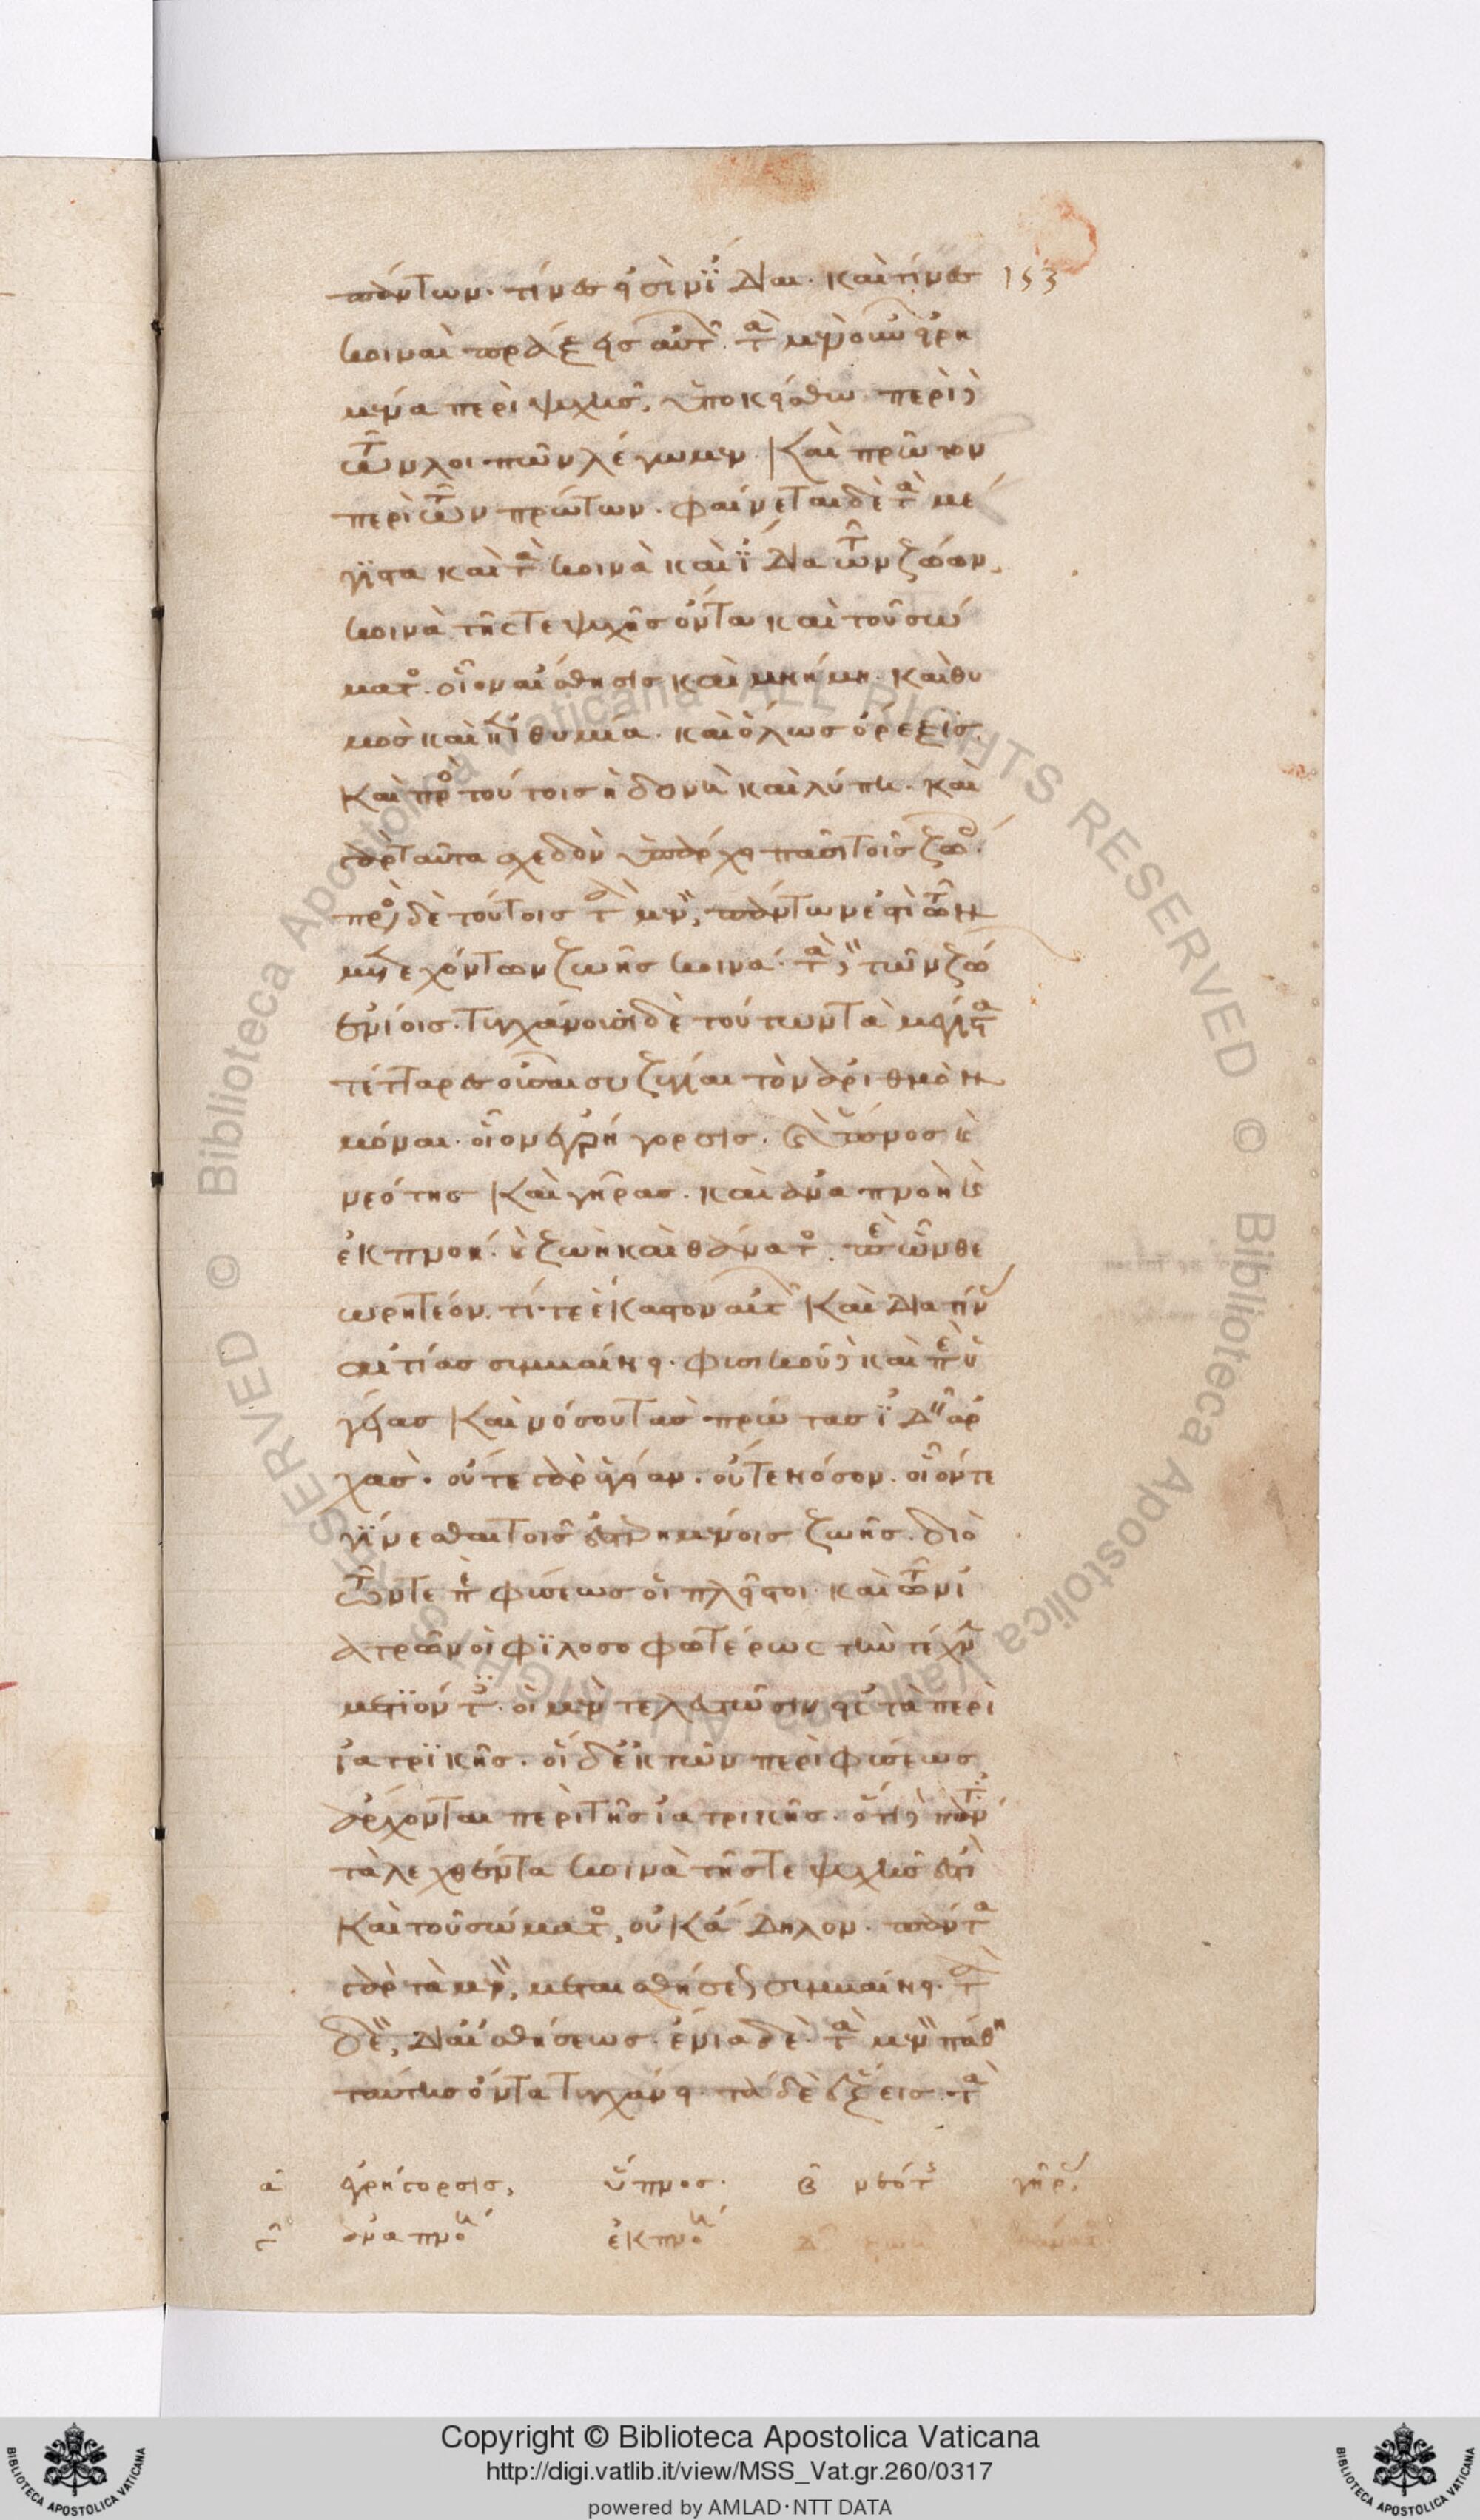 πάντων. τίνες εἰσὶν ἴδιαι. καὶ τίνες 153
κοιναὶ πράξεις αὐτῶν. τὰ μὲν οὖν εἰρη
μένα περὶ ψυχῆς, ὑποκείσθω. περὶ δὲ
τῶν λοιπῶν λέγωμεν. Καὶ πρῶτον
περὶ τῶν πρώτων. φαίνεται δὲ τὰ μέ
γιστα καὶ τὰ κοινὰ καὶ ἴδια τῶν ζώων,
κοινὰ τῆς τε ψυχῆς ὄντα καὶ τοῦ σώ
ματος. οἷον αἴσθησις καὶ μνήμη. καὶ θυ
μὸς καὶ ἐπιθυμία. καὶ ὅλως ὄρεξις.
Καὶ πρὸς τούτοις ἡδονὴ καὶ λύπη. καὶ
γὰρ ταῦτα σχεδὸν ὑπάρχει πᾶσι τοῖς ζώοις.
πρὸς δὲ τούτοις τὰ μὲν, πάντων ἐστὶ τῶν
μετεχόντων ζωῆς κοινά. τὰ δὲ τῶν ζώων
ἐνίοις. τυγχάνουσι δὲ τούτων τὰ μέγιστα
τέτταρες οὖσαι συζυγίαι τὸν ἀριθμὸν
μόναι. οἷον ἐγρήγορσις. καὶ ὕπνος καὶ
νεότης Καὶ γῆρας. καὶ ἀναπνοὴ καὶ
ἐκπνοή. καὶ ζωὴ καὶ θάνατος. περὶ ὧν θε
ωρητέον. τί τε ἕκαστον αὐτῶν Καὶ διὰ τίνας
αἰτίας συμβαίνει. φυσικοῦ δὲ καὶ περὶ ὑ
γείας Καὶ νόσου τὰς πρώτας ἰδεῖν ἀρ
χάς. οὔτε γὰρ ὑγείαν. οὔτε νόσον. οἷόν τε
γίνεσθαι τοῖς ἐστερημένοις ζωῆς. διὸ
τῶν τε περὶ φύσεως οἱ πλεῖστοι. καὶ τῶν ἰ
ατρῶν οἱ φιλοσοφωτέρως τὴν τέχνην
μετιόντες. οἱ μὲν τελευτῶσιν εἰς τὰ περὶ
ἰατρικῆς. οἱ δ' ἐκ τῶν περὶ φύσεως
ἄρχονται περὶ τῆς ἰατρικῆς. ὅτι δὲ πάντα
τὰ λεχθέντα κοινὰ τῆς τε ψυχῆς ἐστὶ
Καὶ τοῦ σώματος, οὐκ ἄδηλον. πάντα
γὰρ τὰ μὲν, μετ' αἰσθήσεως συμβαίνει. τὰ
δὲ, δι' αἰσθήσεως. ἔνια δὲ. τὰ μὲν πάθη
ταύτης ὄντα τυγχάνει. τὰ δὲ ἕξεις. τὰ
α ἐγρήγορσις, ὕπνος. β νεότης γῆρας
γ ἀναπνοή ἐκπνοή δ ζωὴ θάνατος
Copyright © Biblioteca Apostolica Vaticana
http://digi.vatlib.it/view/MSS_Vat.gr.260/0317
powered by AMLAD·NTT DATA
BIBLIOTECA APOSTOLICA VATICANA
BIBLIOTECA APOSTOLICA VATICANA
© Biblioteca Apostolica Vaticana ALL RIGHTS RESERVED
© Biblioteca Apostolica Vaticana ALL RIGHTS RESERVED